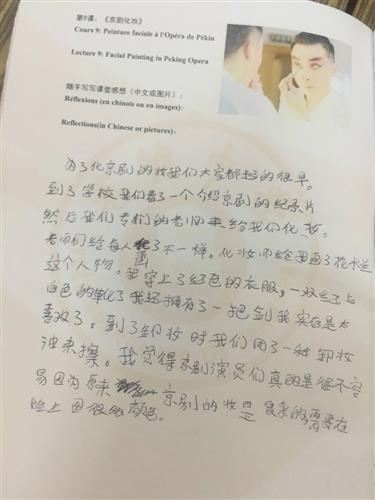 第9课：《京剧化妆》
Cours 9: Peinture faciale à l'Opéra de Pékin
Lecture 9: Facial Painting in Peking Opera
随手写写课堂感想（中文或图片）：
Réflexions (en chinois ou en images):
Reflections(in Chinese or pictures):
为了化京剧的妆我们大家都起的很早。
到了学校我们看了一个介绍京剧的纪录片
然后我们专门的老师来给我们化妆。
老师们给每人画了不一样。化妆师给我画了花木兰
这个人物。我穿上了红色的衣服，一双红与
白色的靴子我还拥有了一把剑我实在是太
喜欢了。到了卸妆时我们用了一种卸妆
油来擦。我觉得京剧演员们真的是很不容
易因为原来京剧的妆是复杂的需要在
脸上画很多颜色。